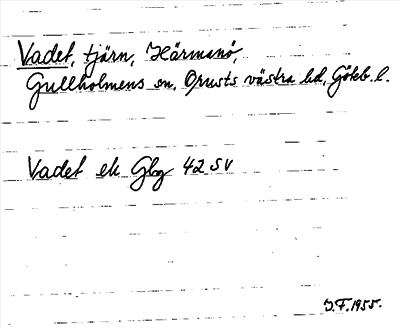 Vadet, tjärn, Härmanö,
Gullholmens sn, Orusts västra hd, Göteb. l.
Vadet ek Gbg 42 SV
J.F. 1955.